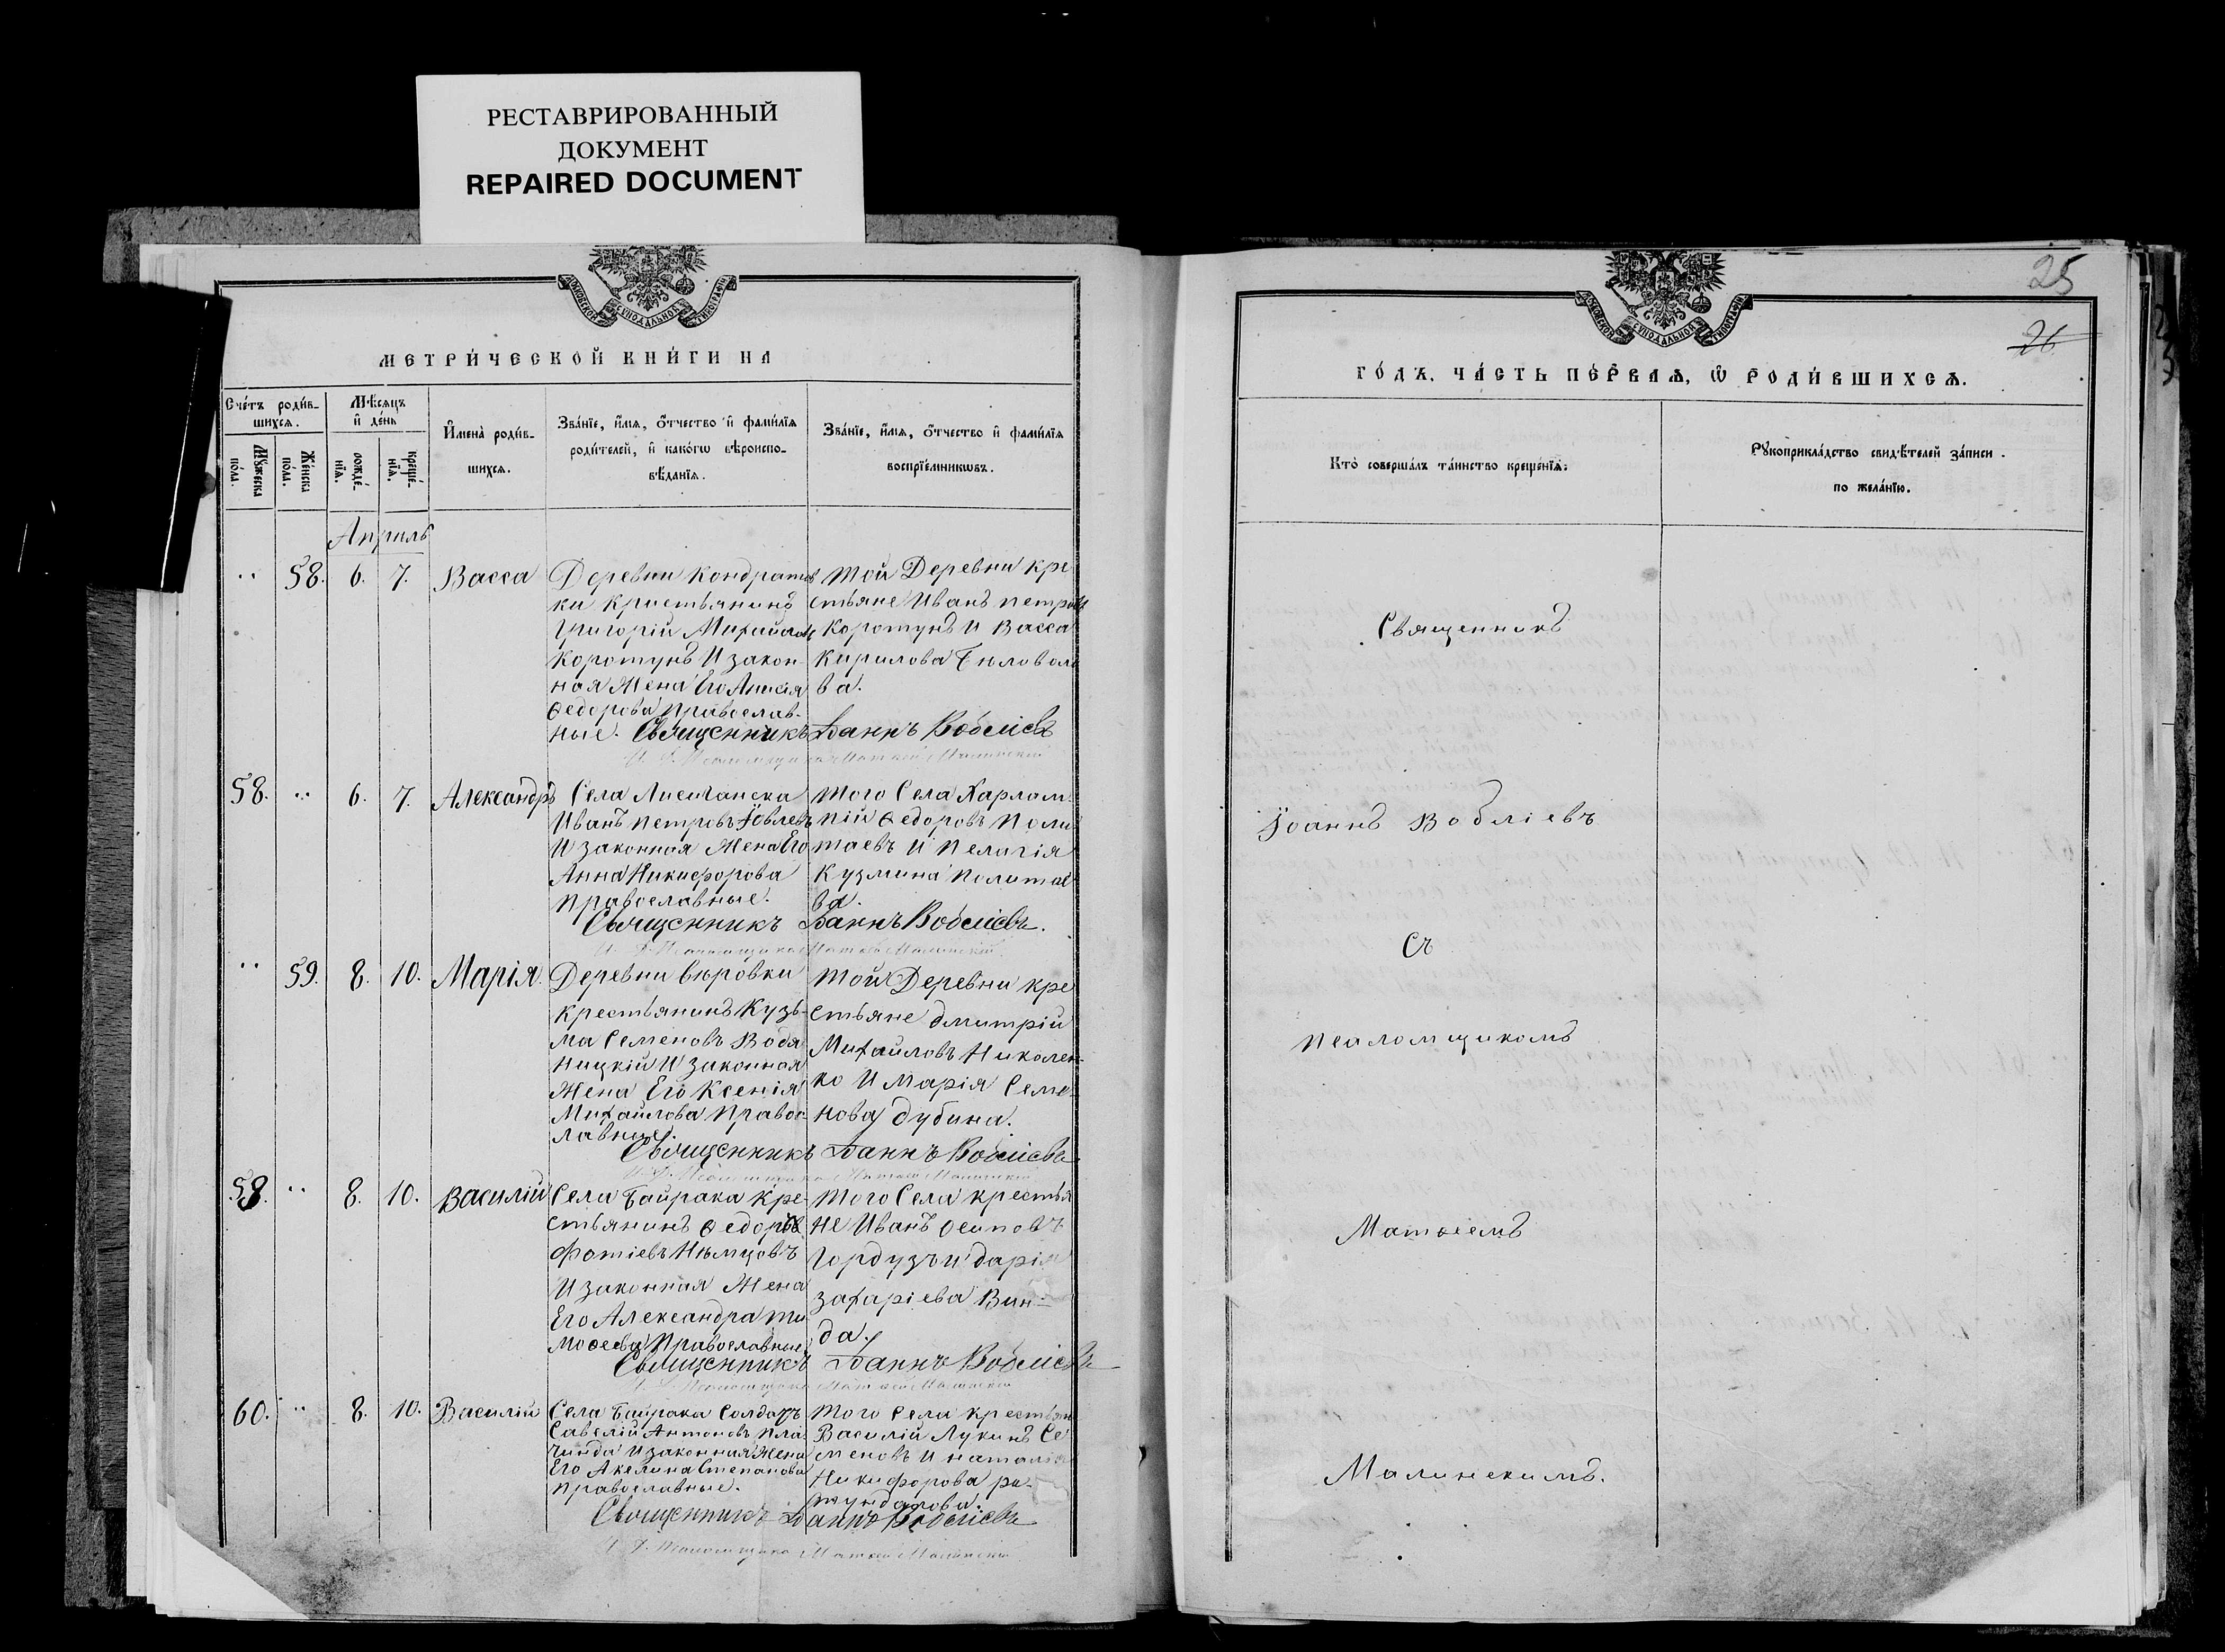 РЕСТАВРИРОВАННЫЙ
ДОКУМЕНТ
REPAIRED DOCUMENT
МЕТРИ́ЧЕСКОЙ КНИ́ГИ НА
Сче́тъ роди́в-
шихся.
Мѣсяцъ
и де́нь
Мꙋ́жеска
по́ла.
Же́нска
по́ла.
рожде́-
нїѧ.
креще́-
нїѧ.
Имена̀ роди́в-
шихсѧ.
Зва́нїе, и́мѧ, о́тчество и фами́лїѧ
роди́телей, и како́гѡ вѣроиспо-
вѣ́данїѧ.
Зва́нїе, и́мѧ, о́тчество и фами́лїѧ
воспрїе́мникѡвъ.
Апрель
58. 6. 7. Васса
Деревни Кондратов
ки Кристьянинъ
Григорій Михайловъ
Коротунъ И закон-
ная Жена Его Анисія
Ѳедорова Православ-
ные.
той Деревни кре
стьяне Иванъ петровъ
Коротунъ и Васса
Кирилова Беловоло
ва.
Священникъ Іоаннъ Воблiевъ
58. 6. 7. Александръ
Села Лисичанска
Иванъ петровъ
И законная Жена Его
Анна Никифорова
Православные.
того Села Харлам-
пій Ѳедоровъ Поли
таевъ и Пелагія
Кузмина Политае
ва.
Священникъ Іоаннъ Воблiевъ.
59. 8. 10. Марія.
Деревни Вѣровки
крестьянинъ Кузь-
ма Семеновъ Водя
ницкій И законная
Жена Его Ксенія
Михайлова Правос-
лавные.
той Деревни кре
стьяне дмитрій
Михайловъ Николен-
ко И Марія Семе-
нова дубина.
Священникъ Іоаннъ Воблiевъ
8. 10. Василій
Села Байрака Кре-
стьянинъ Ѳедоръ
Фотіевъ Нѣмцовъ
И законная Жена
Его Александра ти
моѳеева Православные
того Села крестья
не Иванъ Осиповъ
Гордузъ и дарія
захаріева Вин-
да.
Священникъ Іоаннъ Воблiевъ
60. 8. 10. Василій
Села Байрака Солдатъ
Савелій Антоновъ Пла
чинда И законная Жена
Его Акелина Степанова
Православные.
того Села крестьян
Василій Лукинъ Се
меновъ И наталія
Никифорова ра-
Священникъ Іоаннъ Воблiевъ
25
26
ГО́ДЪ, ЧА́СТЬ ПЕ́РВАѦ, Ѡ РОДИ́ВШИХСѦ.
Кто̀ соверша́лъ та́инство креще́нїѧ.
Рꙋкоприкла́дство свидѣ́телей за́писи
по жела́нїю.
Священникъ
Іоаннъ Воблiевъ
Съ
псаломщикомъ
Матѳеемъ
Малинскимъ.